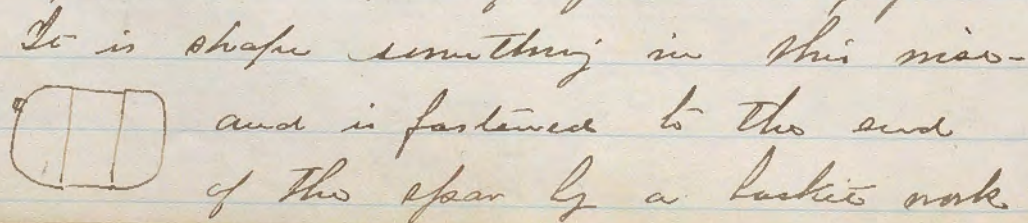 It is shape something in this mise-
and is fastened to the end
of the spar by a baskit work